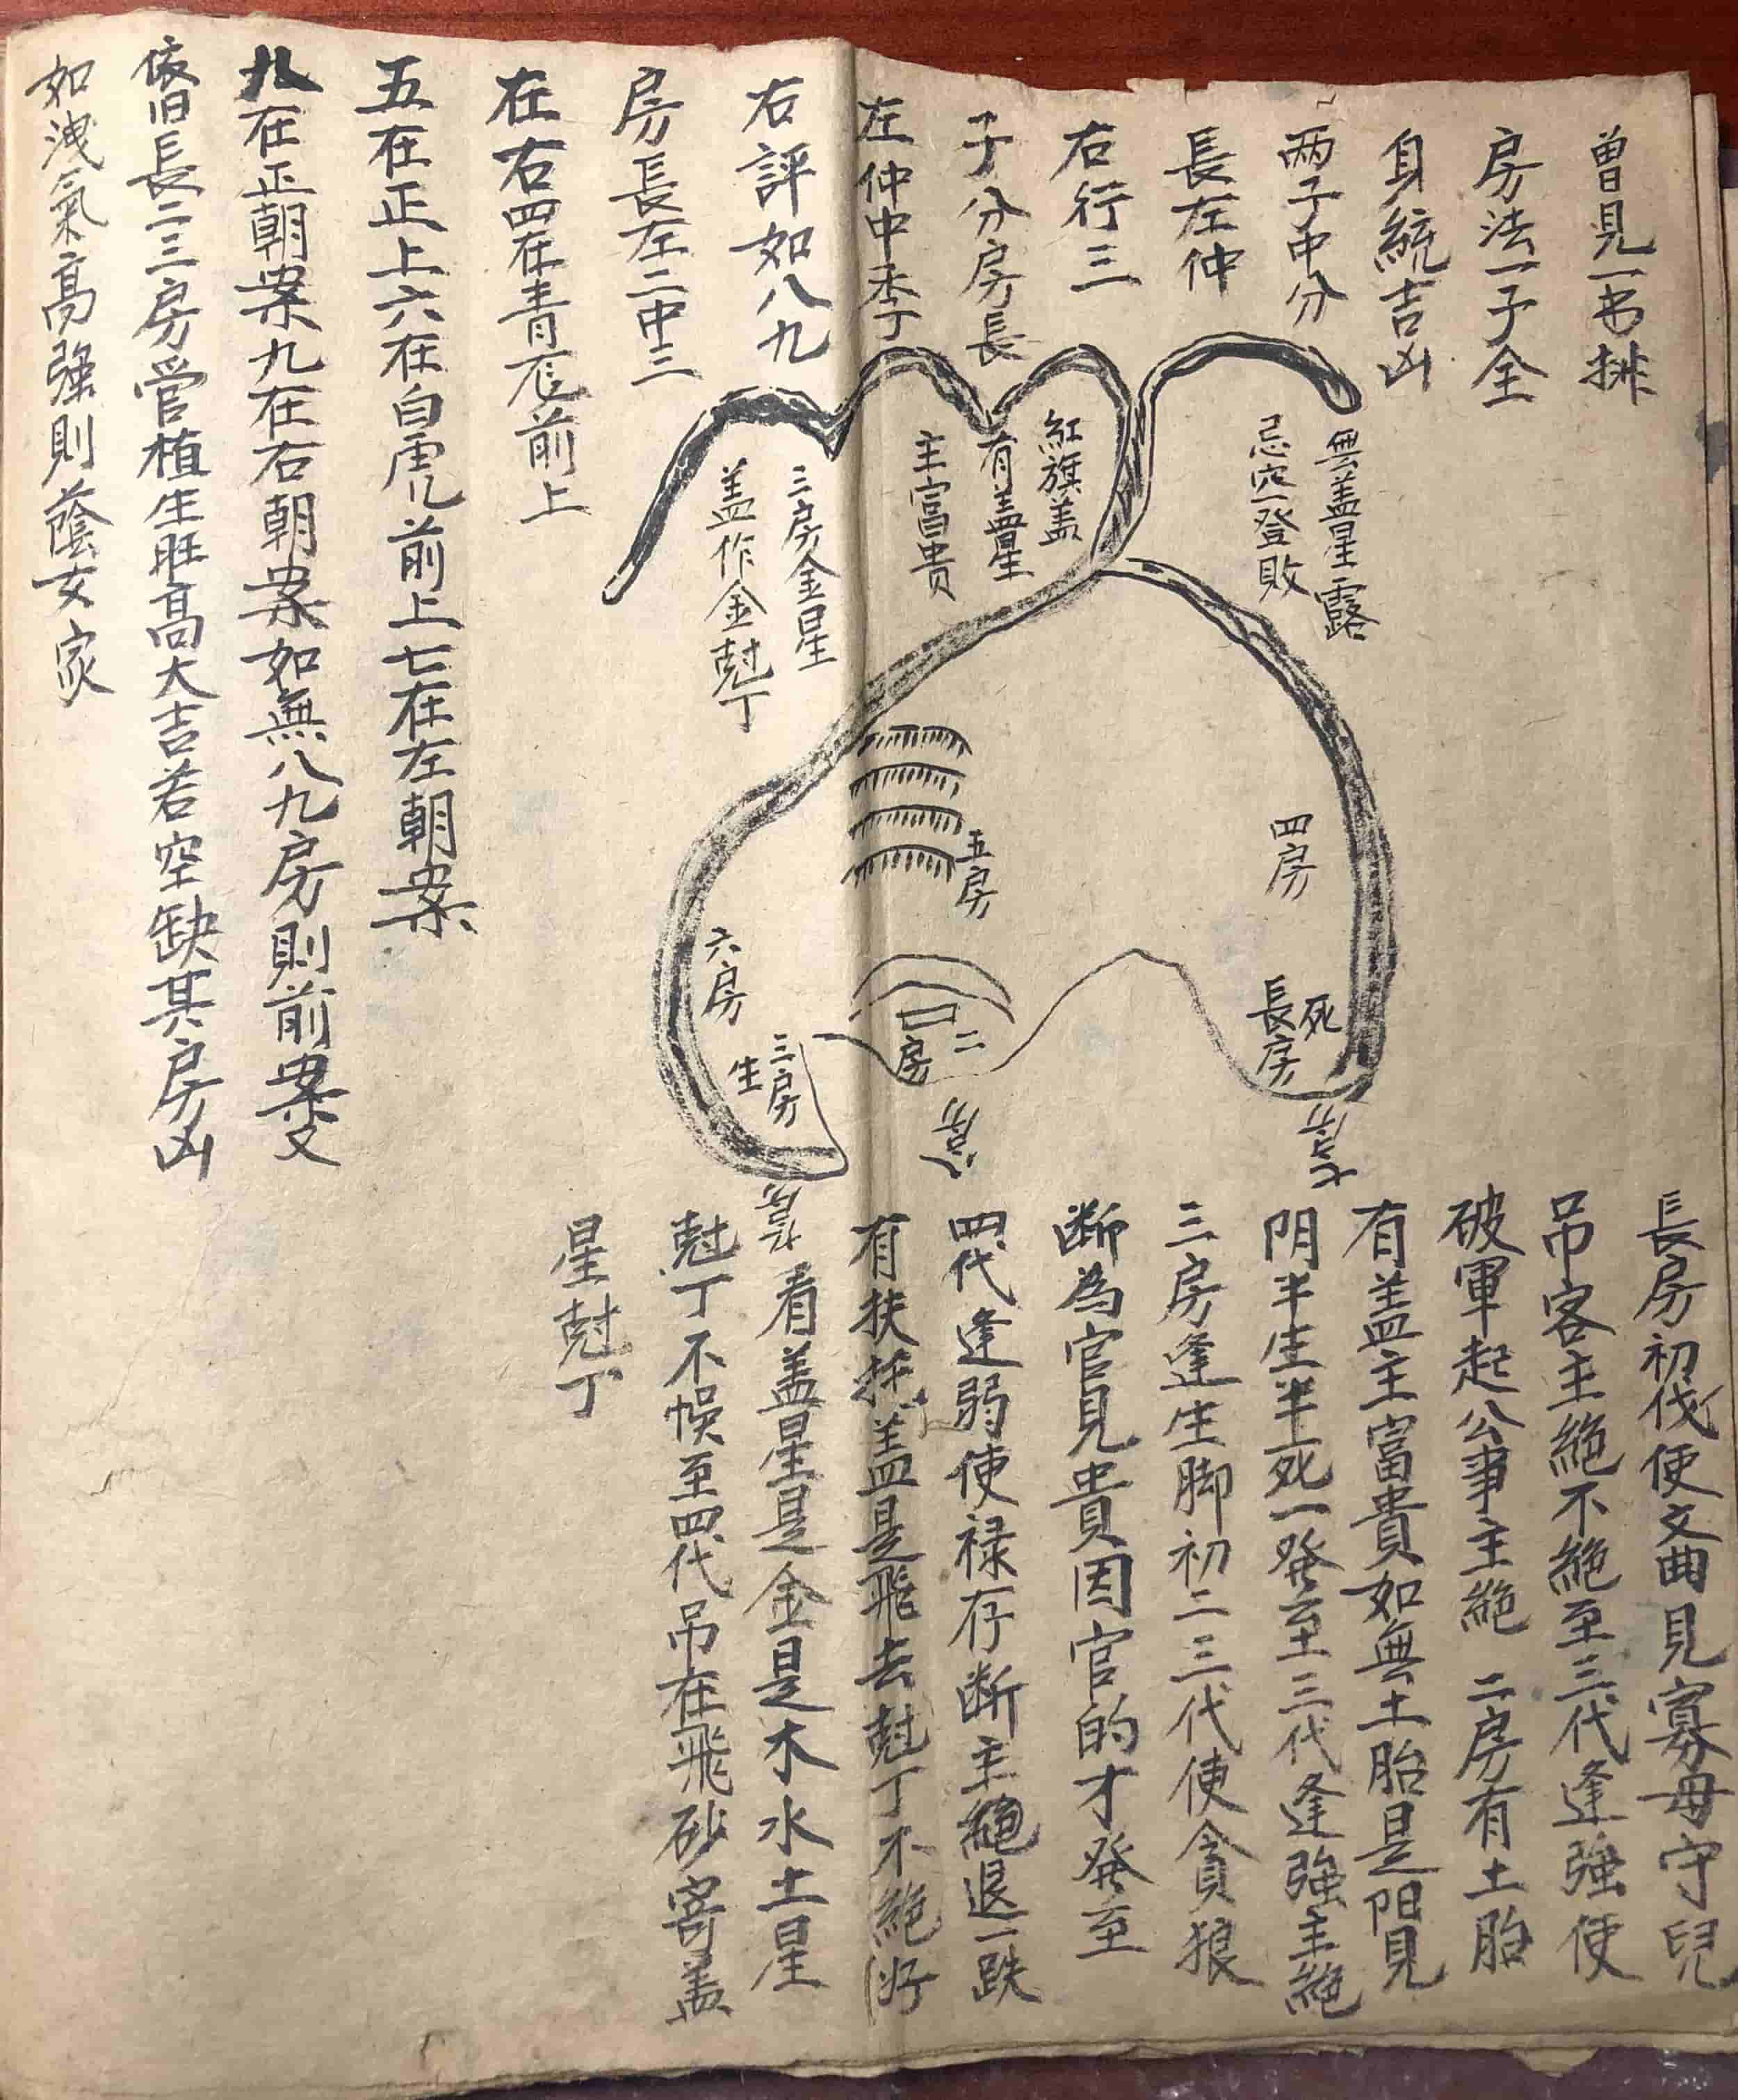 曾見一书排
房法一子全
身統吉凶
两子中分
長左仲
右行三
子分房長
左仲中季丁
右評如八九
房長左二中三
在右四在青龙前上
五在正上六在白虎前上七在左朝案
八在正朝案九在右朝案如無八九房則前案又
依旧長二三房管植生旺高大吉若空缺其房凶
如洩氣高強則蔭女家
無盖星露
忌穴登敗
紅旗盖
有盖星
主富貴
三房金星
盖作金尅丁
四房
五房
六房
死
長房
二
房
三房
生
長房初代使文曲見寡母守兒
吊客主絕不絕至三代逢強使
破軍起公事主絕 二房有土胎
有盖主富貴如無土胎是阳見
阴半生半死一発至三代逢強主絕
三房逢生脚初二三代使貪狼
断為官見貴因官的才発至
四代逢弱使禄存断主絕退一跌
有扶 盖是飛去尅丁不絕
看盖星是金是木水土星
尅丁不 至四代吊在飛砂寄盖
星尅丁